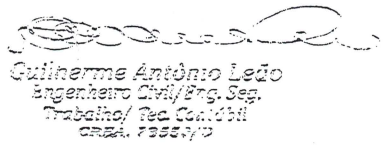 Guilherme Antônio Leão
Engenheiro Civil/Eng. Seg.
Trabalho/ Tec. Contábil
CREA.